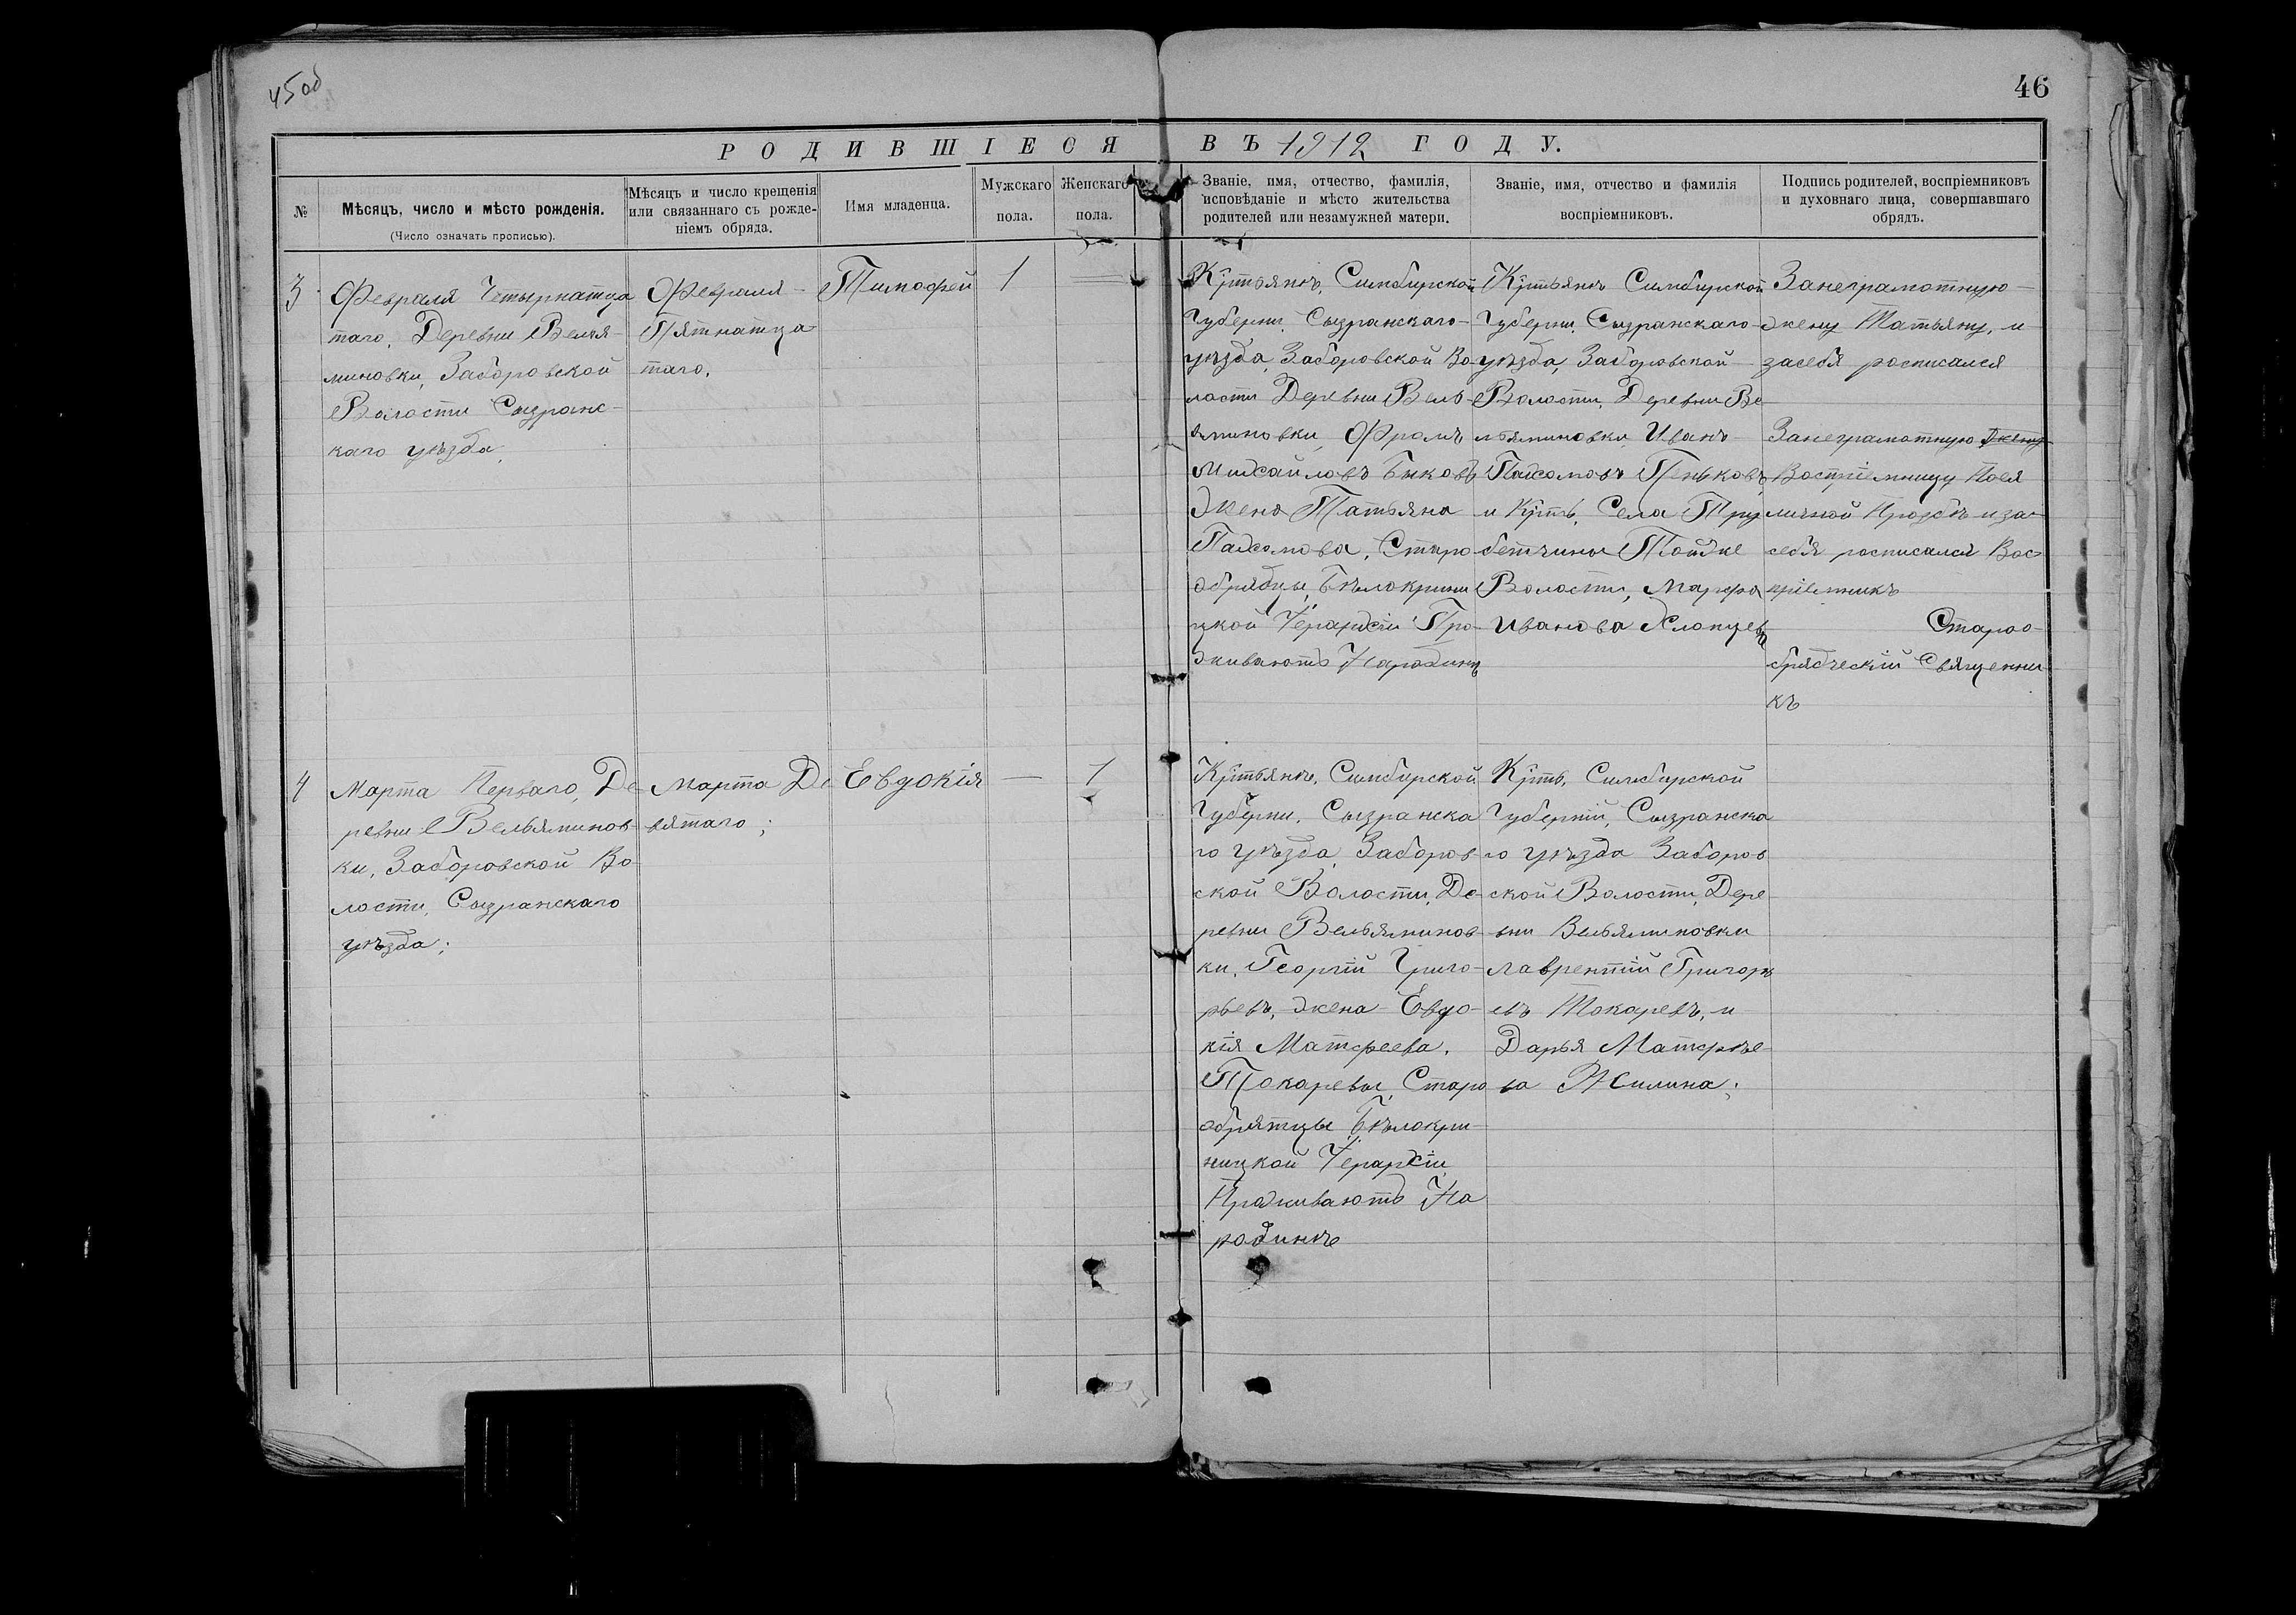 45 об
46
РОДИВШІЕСЯ ВЪ 1912 ГОДУ.
№
Мѣсяцъ, число и мѣсто рожденія.
(Число означать прописью).
Мѣсяцъ и число крещенія
или связаннаго съ рожде-
ніемъ обряда.
Имя младенца.
Мужскаго
пола.
Женскаго
пола.
Званіе, имя, отчество, фамилія,
исповѣданіе и мѣсто жительства
родителей или незамужней матери.
Званіе, имя, отчество и фамилія
воспріемниковъ.
Подпись родителей, воспріемниковъ
и духовнаго лица, совершавшаго
обрядъ.
3
Февраля Четырнатца
таго, Деревни Велья-
миновки, Заборовской
Волости Сызранс-
каго уѣзда,
Февраля -
Пятнатца-
таго,
Тимофей
1
Крстьянѣ, Симбирской
Губерни, Сызранскаго-
уѣзда, Заборовской Во-
лости Деревни Вель-
яминовки,
Михайловъ Быковъ
Жена Татьяна
Пахомова, Старо
обрядцы, Бѣлокрини
цкой Іерархіи Про-
живаютъ Народинѣ
Крстьянѣ Симбирской
Губерни, Сызранскаго-
уѣзда, Заборовской
Волости, Деревни Ве
льяминовки Иванъ-
Пахомовъ Пеньковъ,
и Крть, Села Тру
бетчины Тойже
Волости, Марфа
Иванова Хлопцева
Занеграмотную-
жену Татьяну, и
засебя росписался
Занеграмотную жену
Воспріемницу Поея
личной Прозбѣ иза-
себя росписался Вос-
пріемникъ
Староо-
брядческій Священни
къ
4
Марта Перваго, Де-
ревни Вельяминов-
ки, Заборовской Во-
лости, Сызранскаго
уѣзда;
Марта Де
вятаго;
Евдокія
—
1
Крстьянѣ, Симбирской
Губерни, Сызранска
го уѣзда, Заборов-
ской Волости, Де-
ревни Вельяминов-
ки, Георгій Григо-
рьевъ, жена Евдо-
кія Матфеева,
Токаревы, Старо
обрятцы, Бѣлокри-
ницкой Іерархіи,
Проживаютъ На
родинѣ
Крть, Симбирской
Губерній, Сызранска
го уѣзда Заборов
ской Волости, Дере-
вни Вельяминовки
Лаврентій Григорь
евъ Токаревъ, и
Дарья Матфѣе-
ва Жилина;